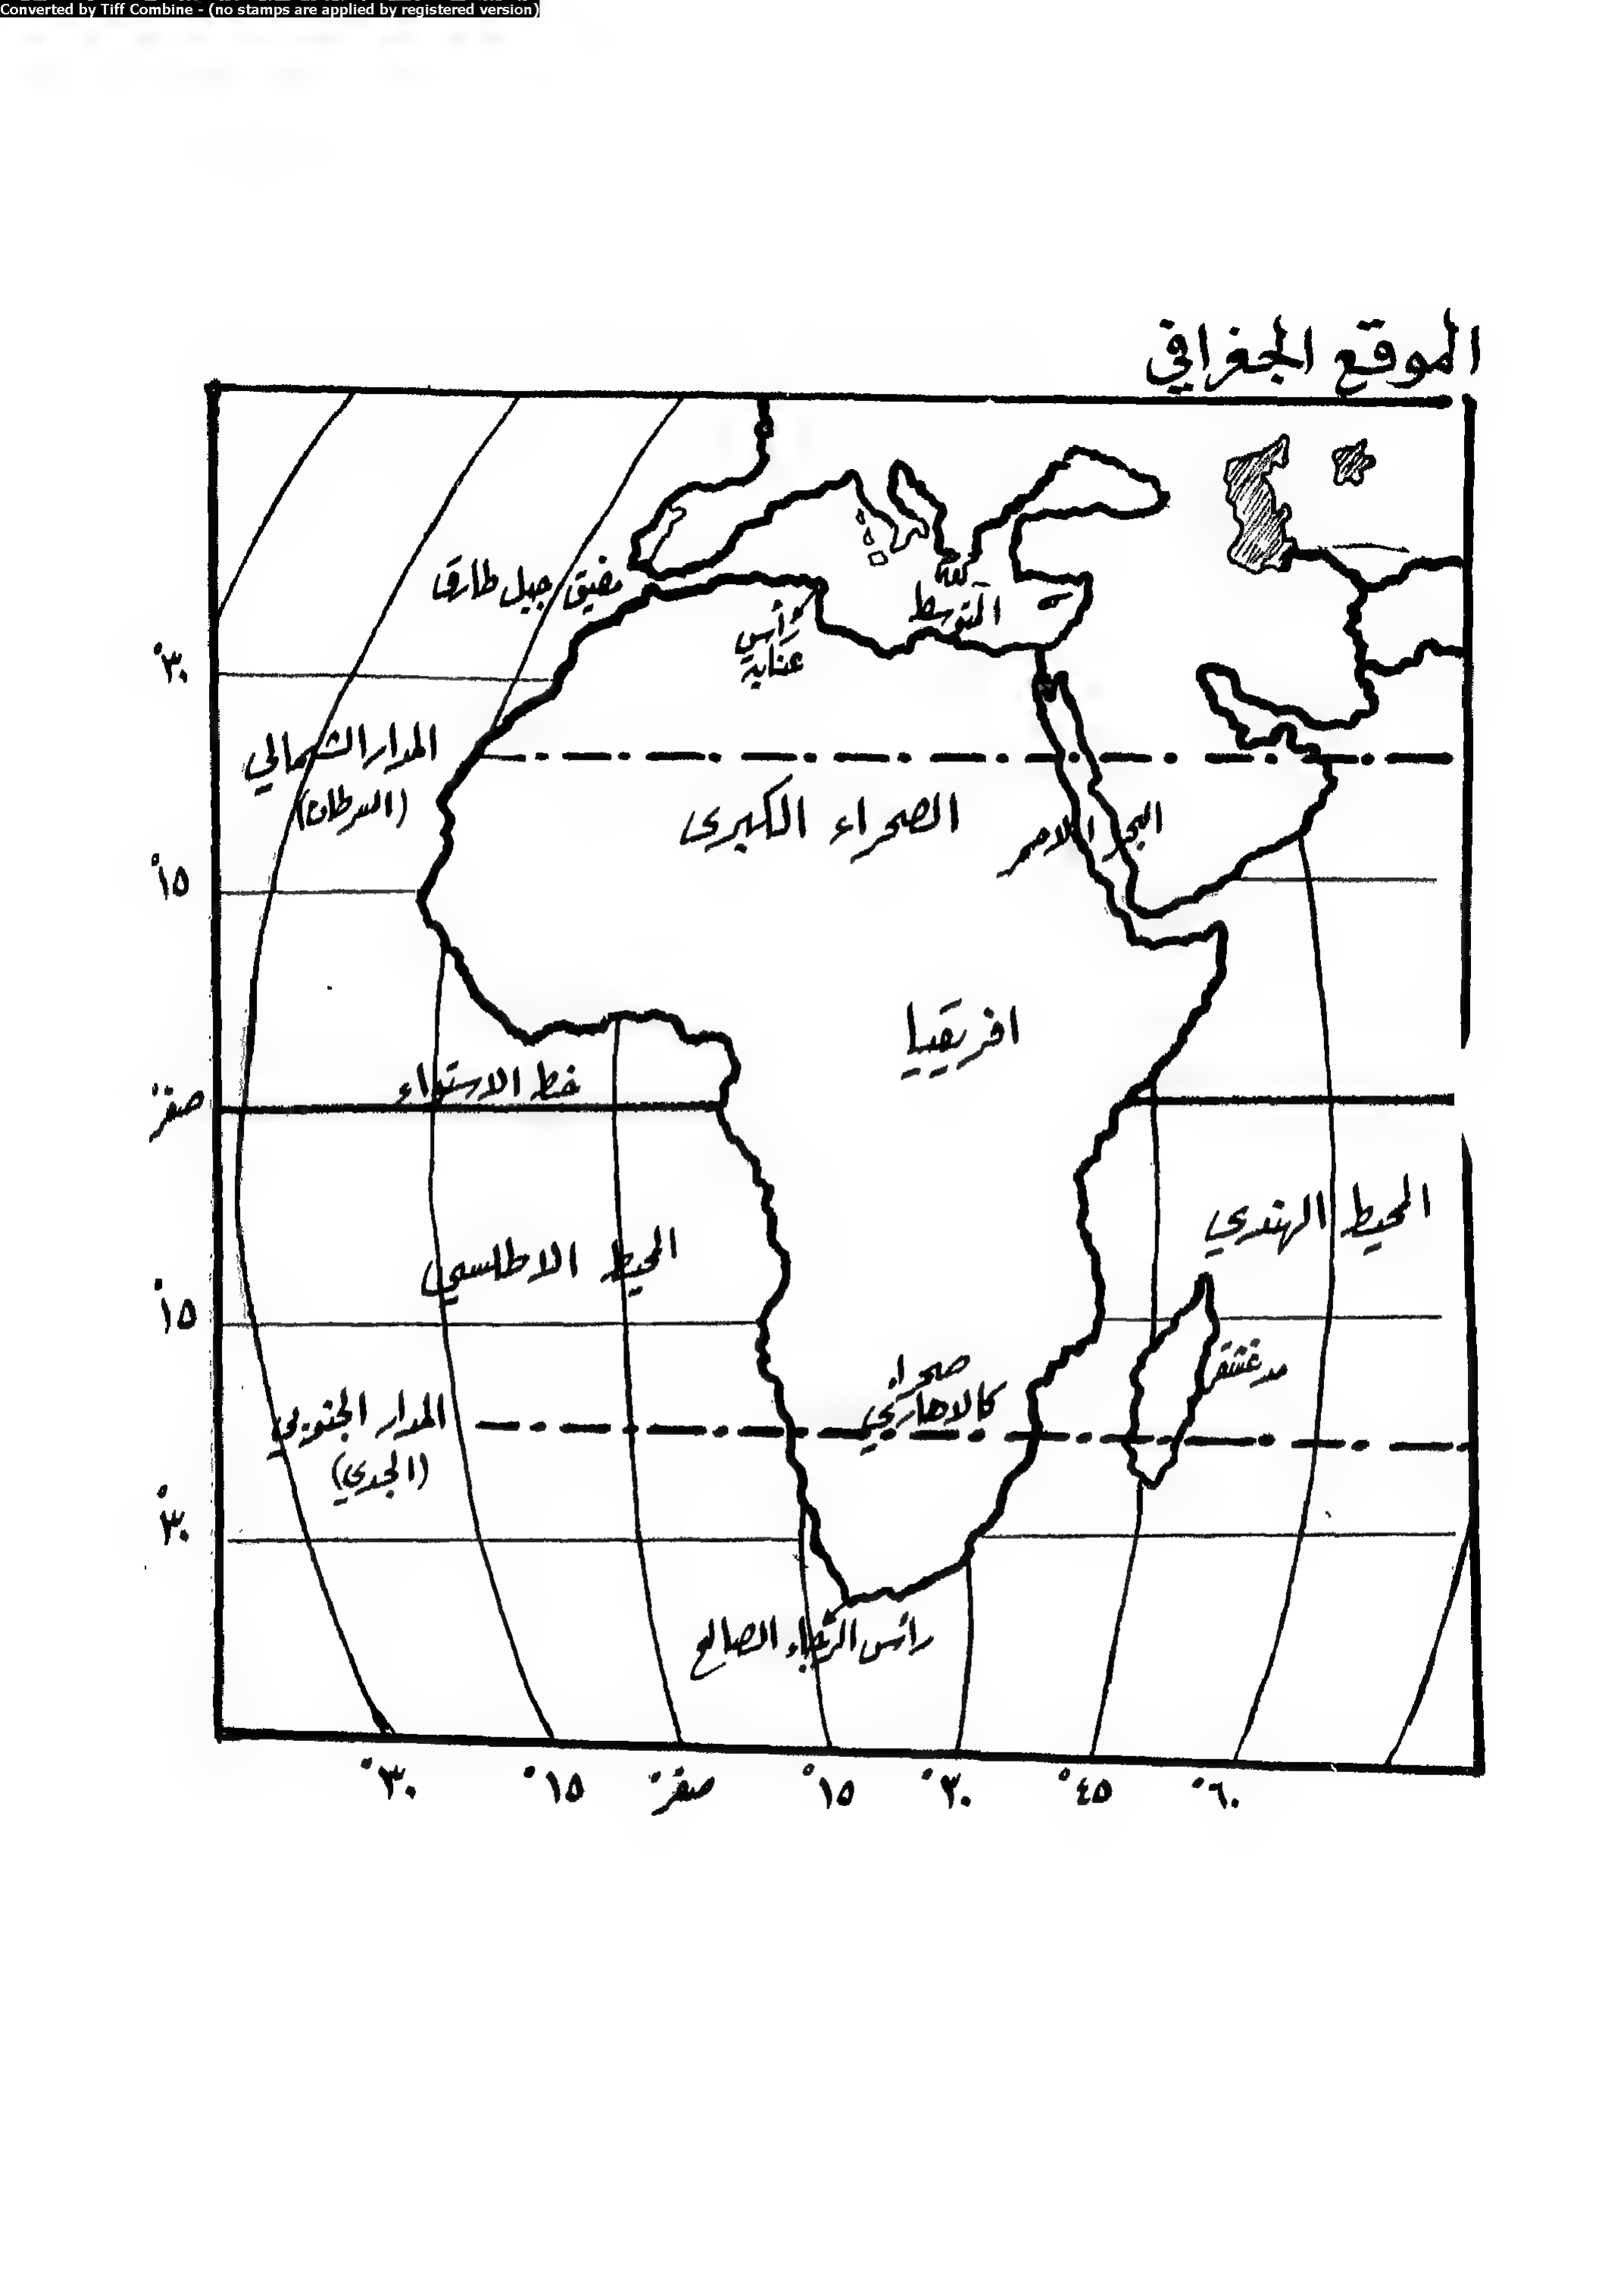 Converted by Tiff Combine - (no stamps are applied by registered version)
الموقع الجغرافي
مضيق جبل طارق
المتوسط
رأس
عنابة
°٣٠
المدار الشمالي
(السرطان)
الصحراء الكبرى
البحر الاحمر
°١٥
افريقيا
خط الاستواء
صفر°
المحيط الهندي
المحيط الاطلسي
°١٥
مدغشقر
صحراء
كالاهاري
المدار الجنوبي
(الجدي)
°٣٠
رأس الرجاء الصالح
°٣٠ °١٥ صفر° °١٥ °٣٠ °٤٥ °٦٠